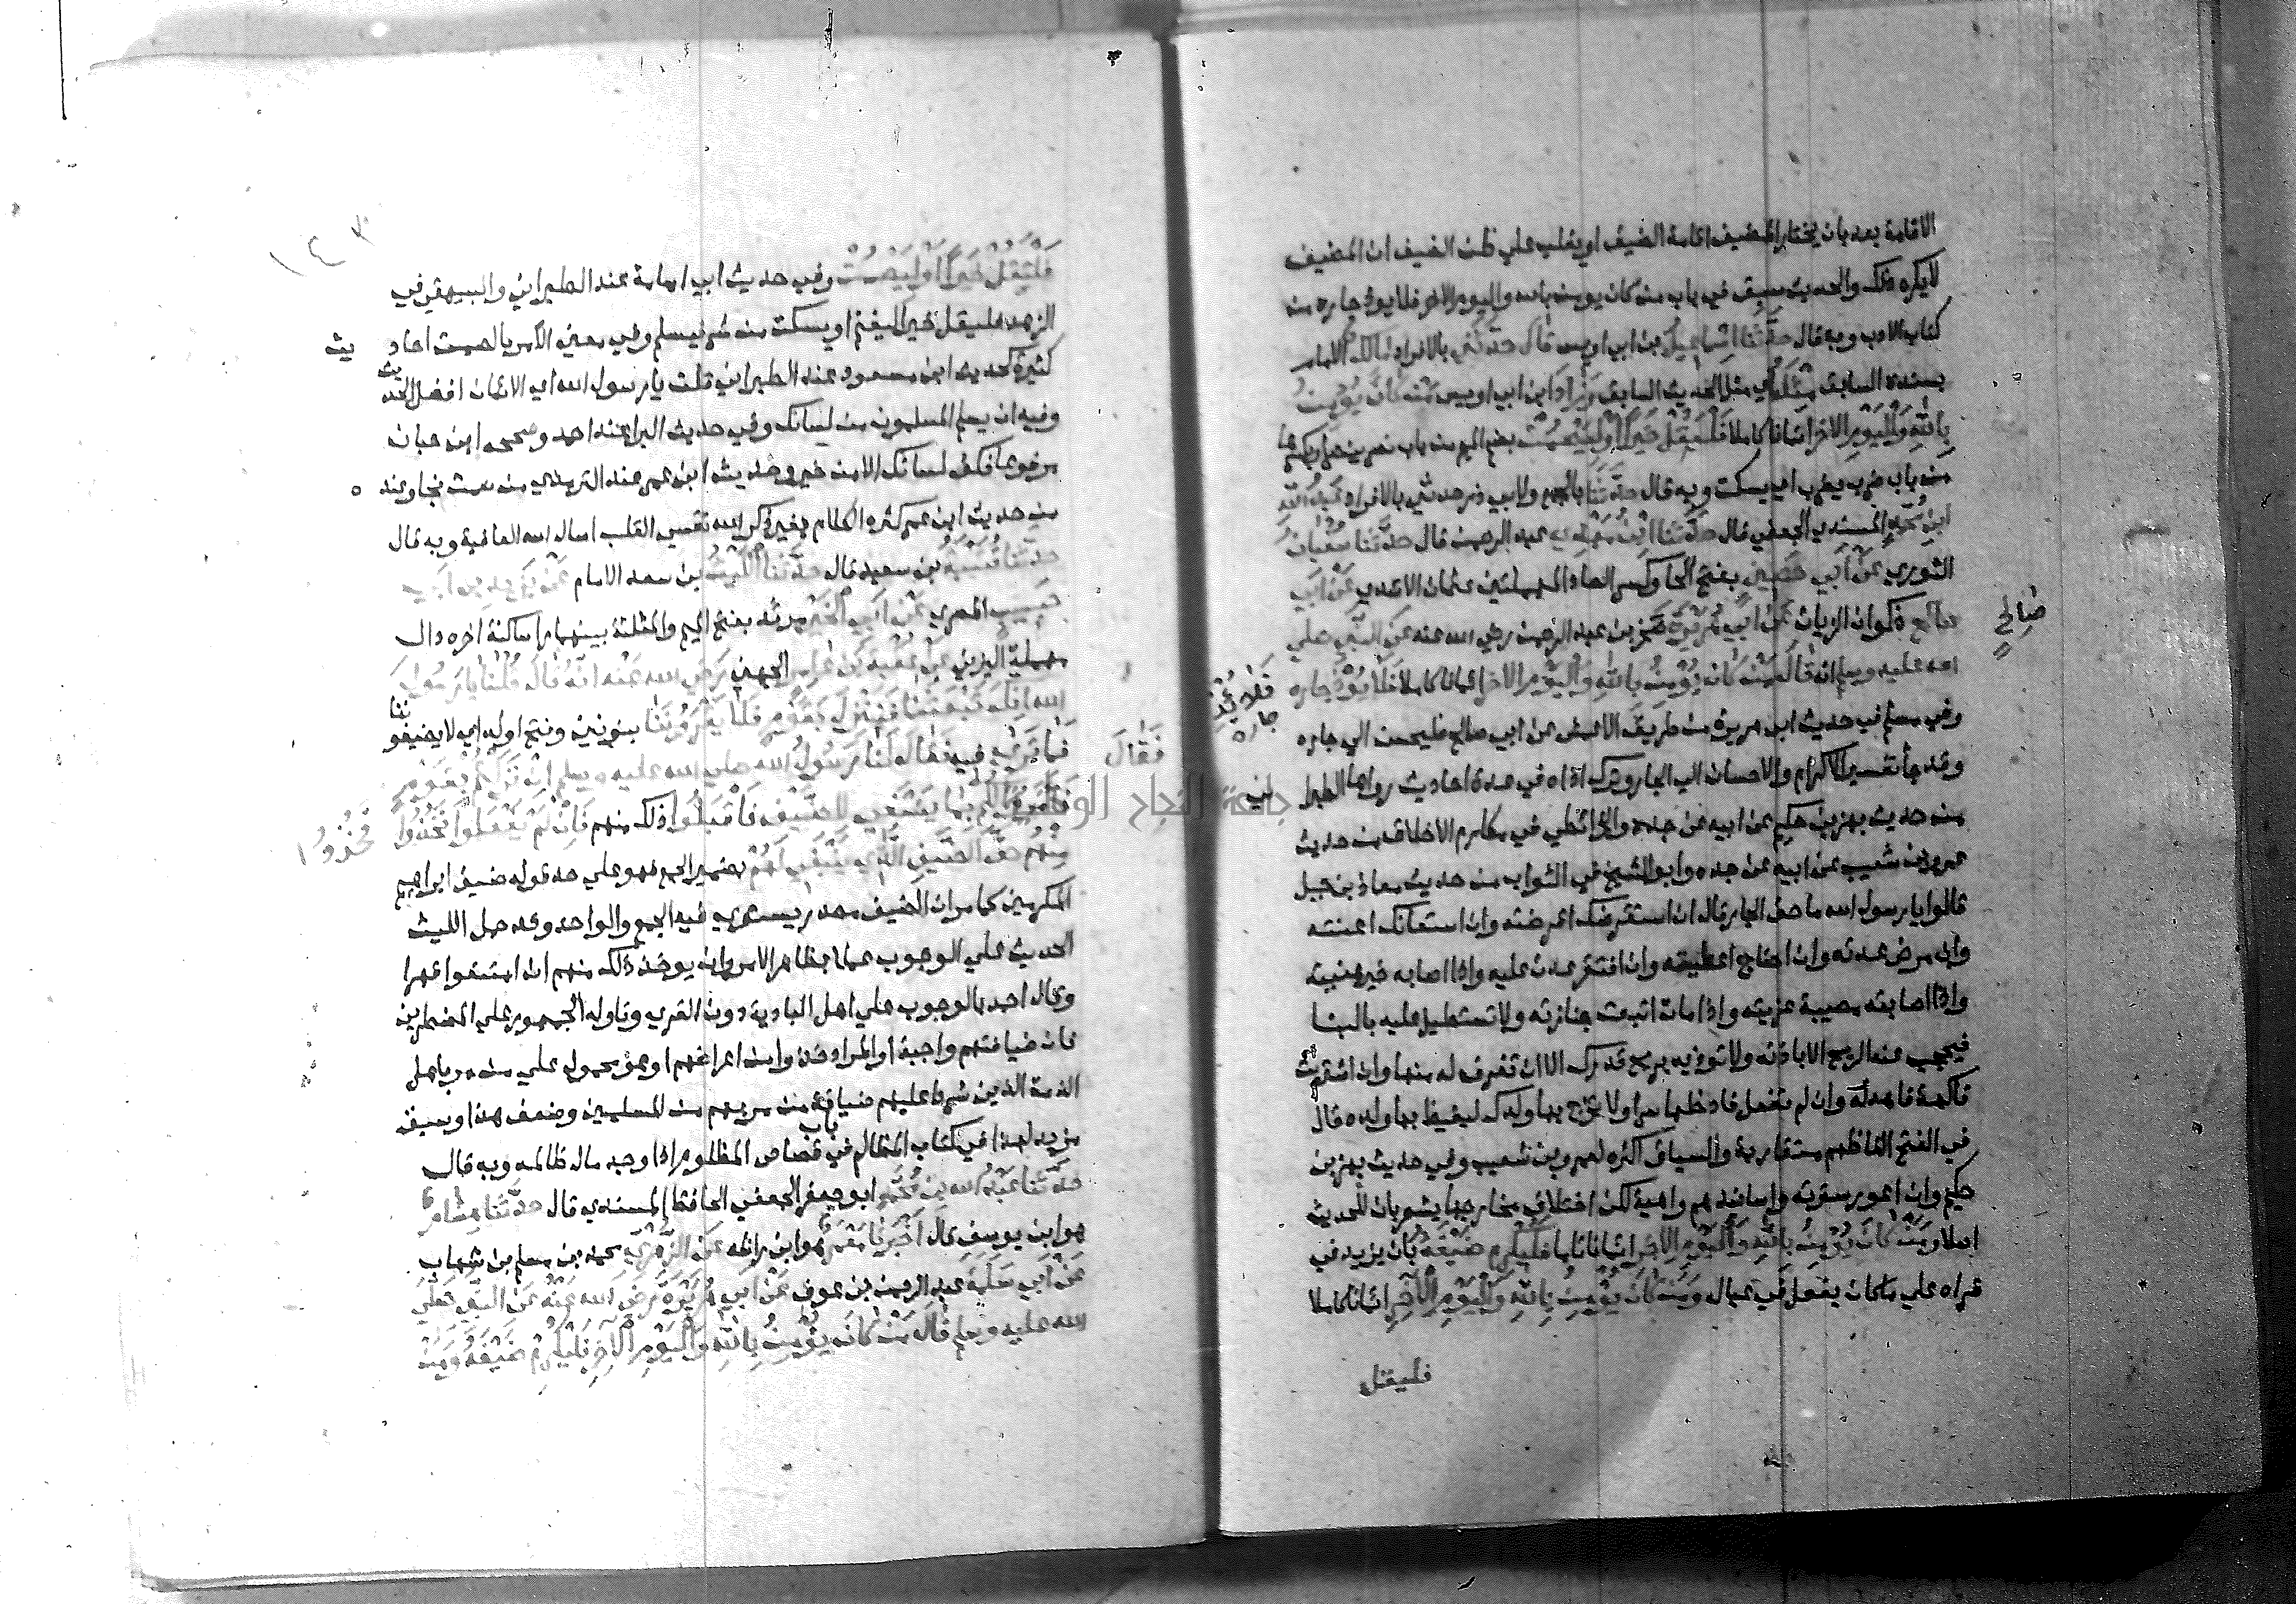 الاقامة بعد بان يختار المضيف اقامة الضيف او يغلب علي ظن الضيف ان المضيف
لايكره ذلك والحديث سبق في باب من كان يومن بالله واليوم الاخر فلا يوذ جاره من
كتاب الادب وبه قال حدثنا اسماعيل بن ابي اويس قال حدثني بالافراد مالك الامام
بسنده السابق مثله اي مثل الحديث السابق وزاد ابن ابي اويس من كان يومن
بالله واليوم الاخر ايمانا كاملا فليقل خيرا او ليصمت بضم الميم من باب نصر
من باب ضرب يضرب اي يسكت وبه قال حدثنا بالجمع ولابي ذر حدثني بالافراد عبد الله
ابن محمد المسندي الجعفي قال حدثنا ابن مهدي عبد الرحمن قال حدثنا سفيان
الثوري عن ابي حصين بفتح الحا وكسر الصاد المهملتين عثمان الاسدي عن ابي
صالح ذكوان الزيات عن ابي هريرة بن عبد الرحمن رضي الله عنه عن النبي صلي
صالح
الله عليه وسلم انه قال من كان يومن بالله واليوم الاخر ايمانا كاملا فلا يوذ جاره
فلا يوذ جاره
وفي مسلم في حديث ابي هريرة من طريق الاعمش عن ابي صالح فليحسن الي جاره
وقد جا تفسير الاكرام والاحسان الي الجار وترك اذاه في عدة احاديث رواها الطبراني
من حديث بهز بن حكيم عن ابيه عن جده والخرائطي في مكارم الاخلاق من حديث
عمرو بن شعيب عن ابيه عن جده وابو الشيخ في الثواب من حديث معاذ بن جبل
قالوا يا رسول الله ما حق الجار قال ان استقرضك اقرضته وان استعانك اعنته
وان مرض عدته وان احتاج اعطيته وان افتقر عدت عليه واذا اصابه خير هنيته
واذا اصابته مصيبة عزيته واذا مات اتبعت جنازته ولا تستطيل عليه بالبنا
فيحجب عنه الريح الا باذنه ولا توذيه بريح قدرك الا ان تغرف له منها وان اشتريت
فاكهة فاهد له وان لم تفعل فادخلها سرا ولا يخرج بها ولدك ليغيظ بها ولده قال
في الفتح الفاظهم متقاربة والسياق اكثره لعمرو بن شعيب وفي حديث بهز بن
حكيم وان اعور سترته واسانيدهم واهية لكن اختلاف مخارجها يشعر بان للحديث
اصلا ومن كان يومن بالله واليوم الاخر ايمانا تاما فليكرم ضيفه بان يزيد في
قراه علي ما كان يفعل في عياله ومن كان يومن بالله واليوم الاخر ايمانا كاملا
فليقل
١٤٣
فليقل خيرا او ليصمت وفي حديث ابي امامة عند الطبراني والبيهقي في
الزهد فليقل خيرا ليغنم او يسكت عن شر فيسلم وفي معني الامر بالصمت احاديث
كثيرة كحديث ابن مسعود عند الطبراني قلت يا رسول الله اي الايمان افضل الحديث
وفيه ان يسلم المسلمون من لسانك وفي حديث البرا عند احمد وصححه ابن حبان
مرفوعا فكف لسانك الا من خير وحديث ابن عمر عند الترمذي من صمت نجا وعنده
من حديث ابن عمر كثرة الكلام بغير ذكر الله تقسي القلب اسال الله العافية وبه قال
حدثنا قتيبة بن سعيد قال حدثنا الليث بن سعد الامام عن يزيد بن ابي
حبيب المصري عن ابي الخير مرثد بفتح الميم والمثلثة بينهما را ساكنة اخره دال
مهملة اليزني عن عقبة بن عامر الجهني رضي الله عنه انه قال قلنا يا رسول
الله انك تبعثنا فننزل بقوم فلا يقروننا بنونين وفتح اوله اي لا يضيفوننا
فما تري فيه فقال لنا رسول الله صلي الله عليه وسلم ان نزلتم بقوم
فقال
فامروا لكم بما ينبغي للضيف فاقبلوا ذلك منهم فان لم يفعلوا فخذوا
فخذوا
منهم حق الضيف الذي ينبغي لهم بضمير الجمع فهو علي حد قوله ضيف ابراهيم
المكرمين كما مر ان الضيف مصدر يستوي فيه الجمع والواحد وقد حمل الليث
الحديث علي الوجوب عملا بظاهر الامر وان يوخذ ذلك منهم ان امتنعوا قهرا
وقال احمد بالوجوب علي اهل البادية دون القري وتاوله الجمهور علي المضطرين
فان ضيافتهم واجبة او المراد خذوا من اعراضهم او هو محمول علي من مر باهل
الذمة الذين شرط عليهم ضيافة من مر بهم من المسلمين وضعف هذا وسبق
مزيد لهذا في كتاب المظالم في باب قصاص المظلوم اذا وجد مال ظالمه وبه قال
حدثنا عبد الله بن محمد ابو جعفر الجعفي الحافظ المسندي قال حدثنا هشام
هو ابن يوسف قال اخبرنا معمر هو ابن راشد عن الزهري محمد بن مسلم بن شهاب
عن ابي سلمة عبد الرحمن بن عوف عن ابي هريرة رضي الله عنه عن النبي صلي
الله عليه وسلم قال من كان يومن بالله واليوم الاخر فليكرم ضيفه ومن
جامعة النجاح الوطنية